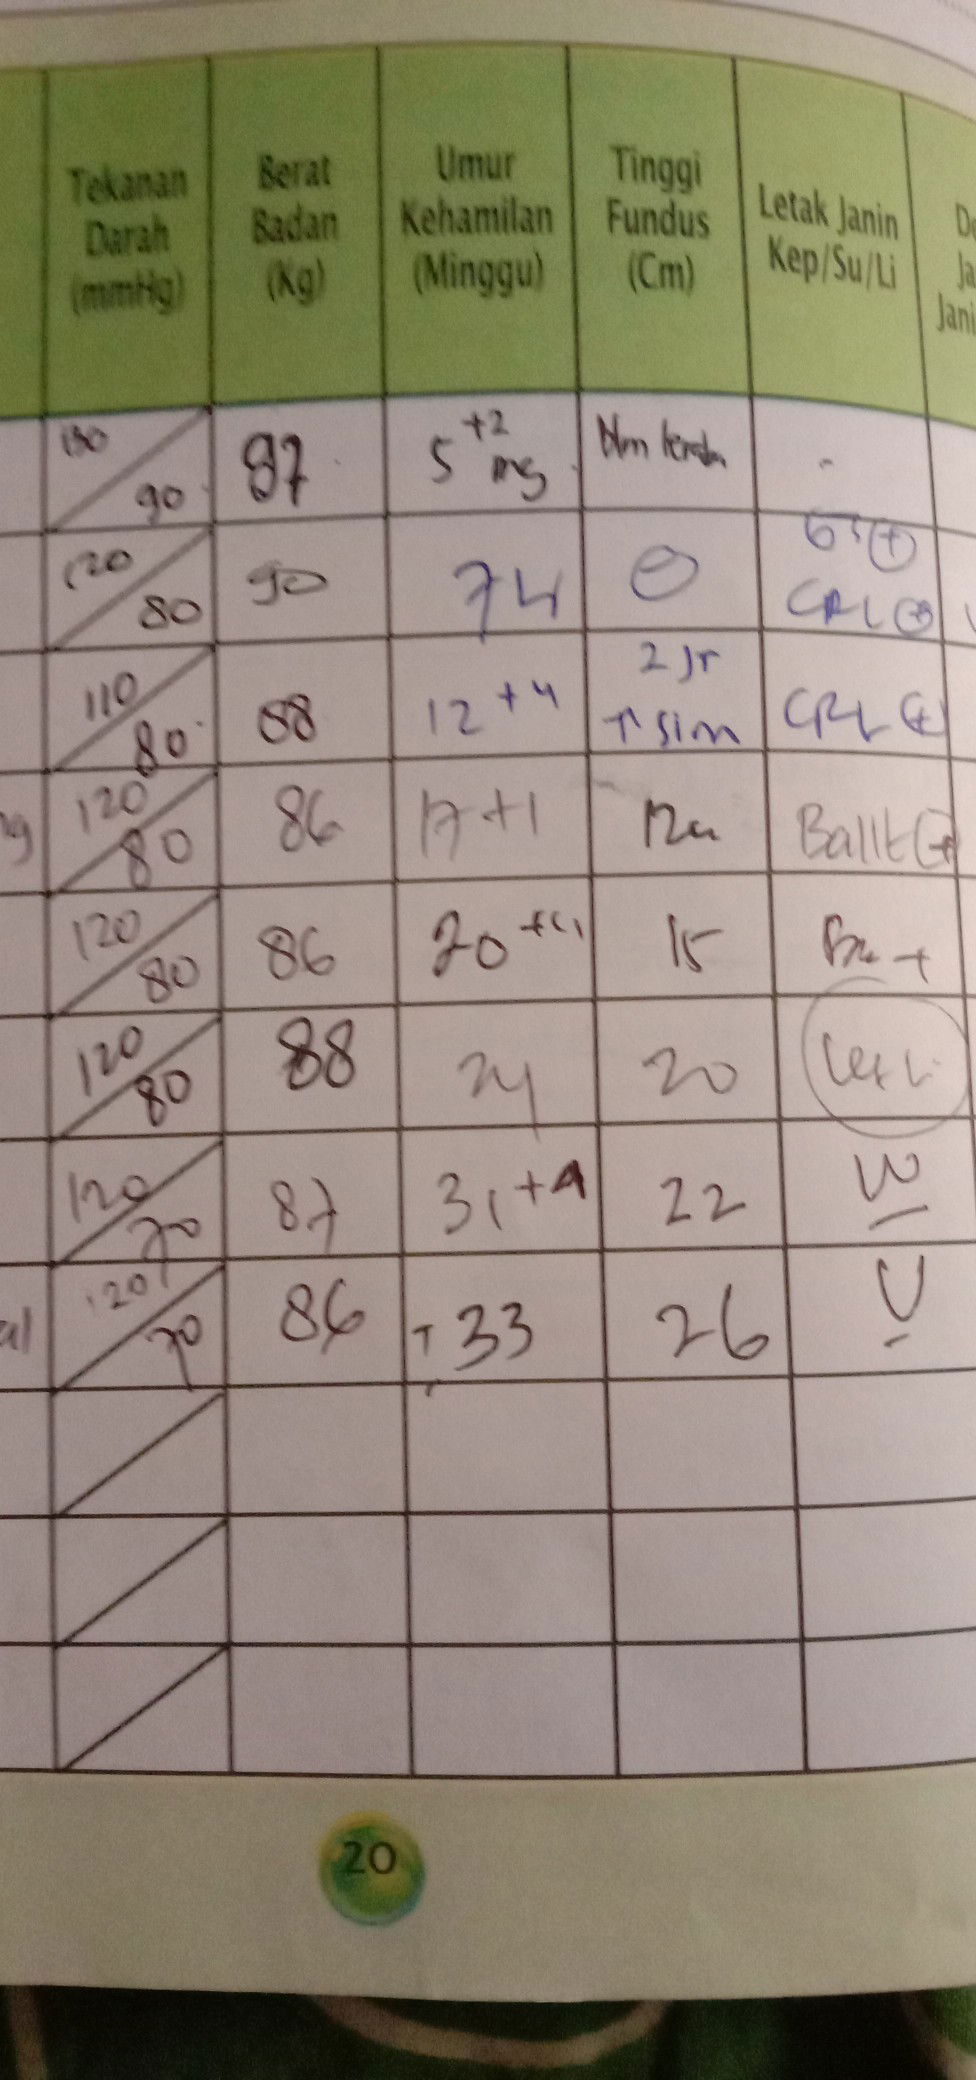 Tekanan Darah (mmHg)
Berat Badan (Kg)
Umur Kehamilan (Minggu)
Tinggi Fundus (Cm)
Letak Janin Kep/Su/Li
90 87 5 +2 mg -
120 80 90 CRL (+)
110 80 88 12 +4 2 jr ↑ sim CRL (+)
120 80 86 17 +1 Ballt (+)
120 80 86 20 15
120 80 88 24 20
120 70 87 31 +4 22
120 70 86 33 26 U
20